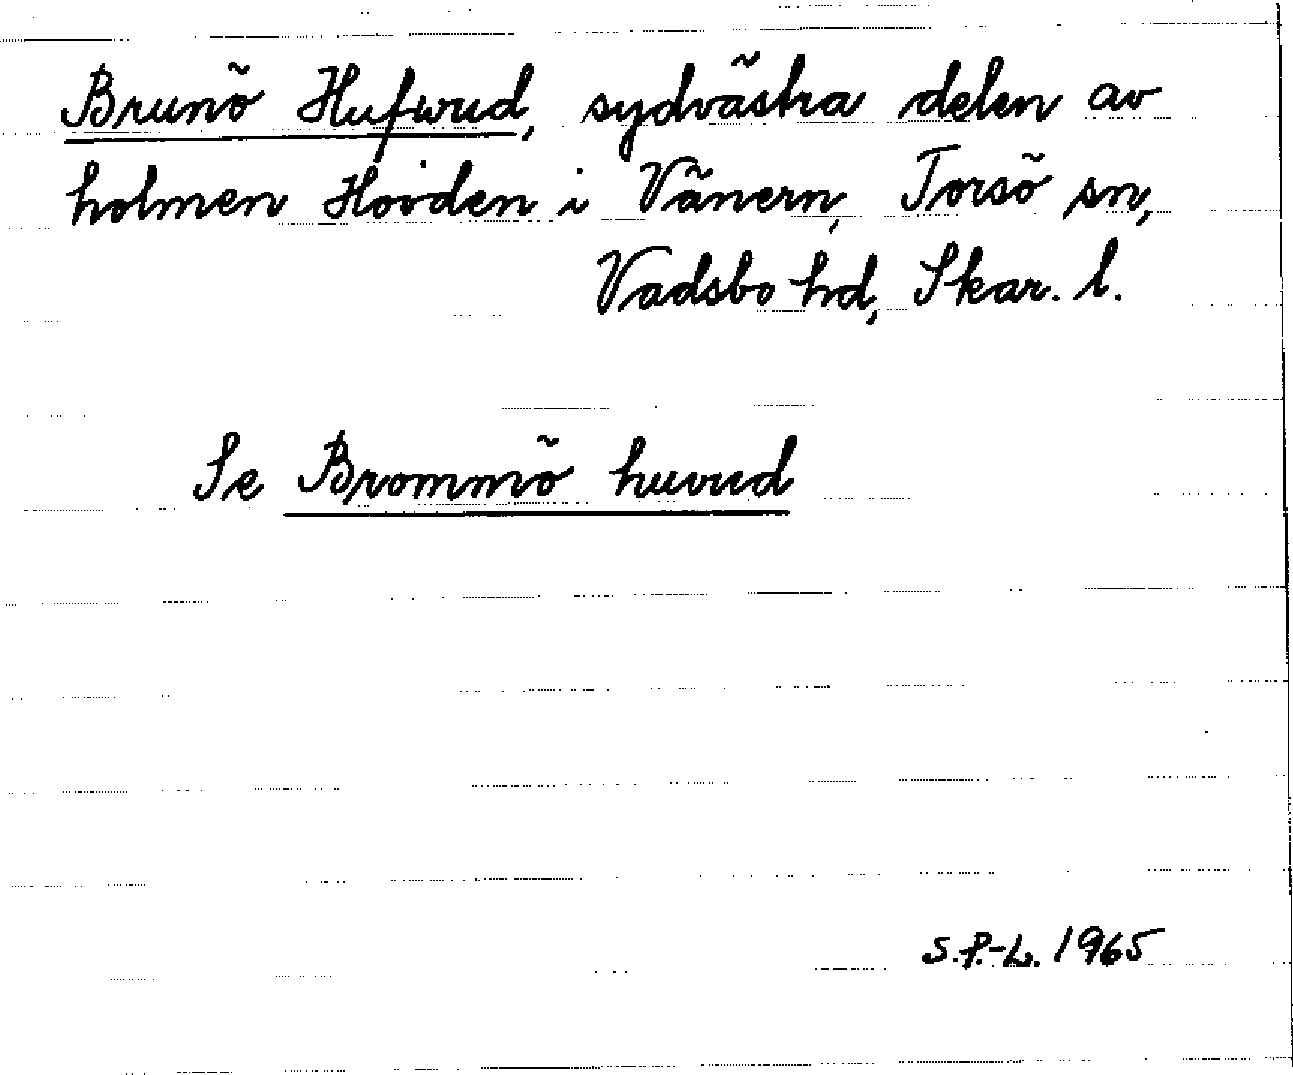 Brunö Hufwud, sydvästra delen av
holmen Hovden i Vänern, Torsö sn,
Vadsbo hd, Skar. l.
Se Brommö huvud
S.P.-L. 1965